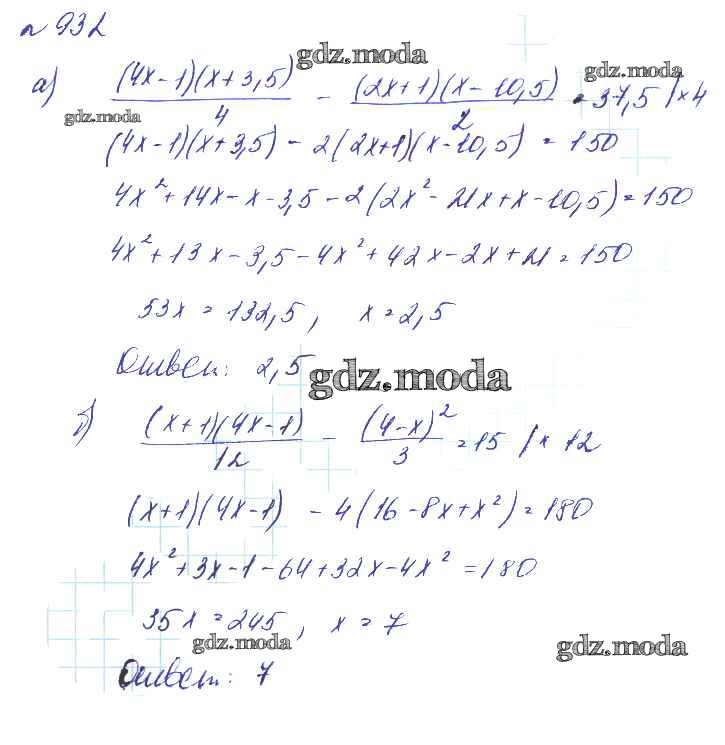 № 932
gdz.moda
gdz.moda
а) (4x-1)(x+3,5)/4 - (2x+1)(x-10,5)/2 = 37,5 /×4
gdz.moda
(4x-1)(x+3,5) - 2(2x+1)(x-10,5) = 150
4x²+14x-x-3,5-2(2x²-21x+x-10,5)=150
4x²+13x-3,5-4x²+42x-2x+21=150
53x = 132,5, x=2,5
Ответ: 2,5
gdz.moda
б) (x+1)(4x-1)/12 - (4-x)²/3 = 15 /×12
(x+1)(4x-1) - 4(16-8x+x²)=180
4x²+3x-1-64+32x-4x²=180
35x=245, x=7
gdz.moda
gdz.moda
Ответ: 7